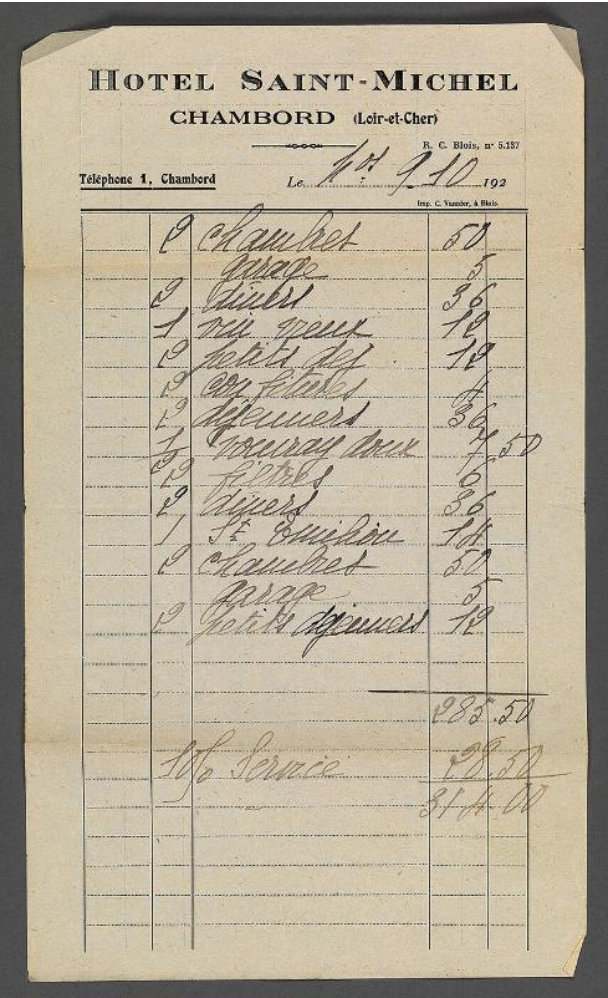 HOTEL SAINT-MICHEL
CHAMBORD (Loir-et-Cher)
R. C. Blois, n° 5.137
Téléphone 1, Chambord
Le Nos 9 10 192
Imp. C. Vannier, à Blois.
2 chambres 50
garage 5
2 diners 36
1 vin vieux 12
2 petits dej. 12
2 confitures 4
2 déjeuners 36
1/2 vouvray doux 7,50
2 filtres 6
2 diners 36
1 St Emilion 14
2 chambres 50
garage 5
2 petits déjeuners 12
285.50
10% Service 28.50
314.00